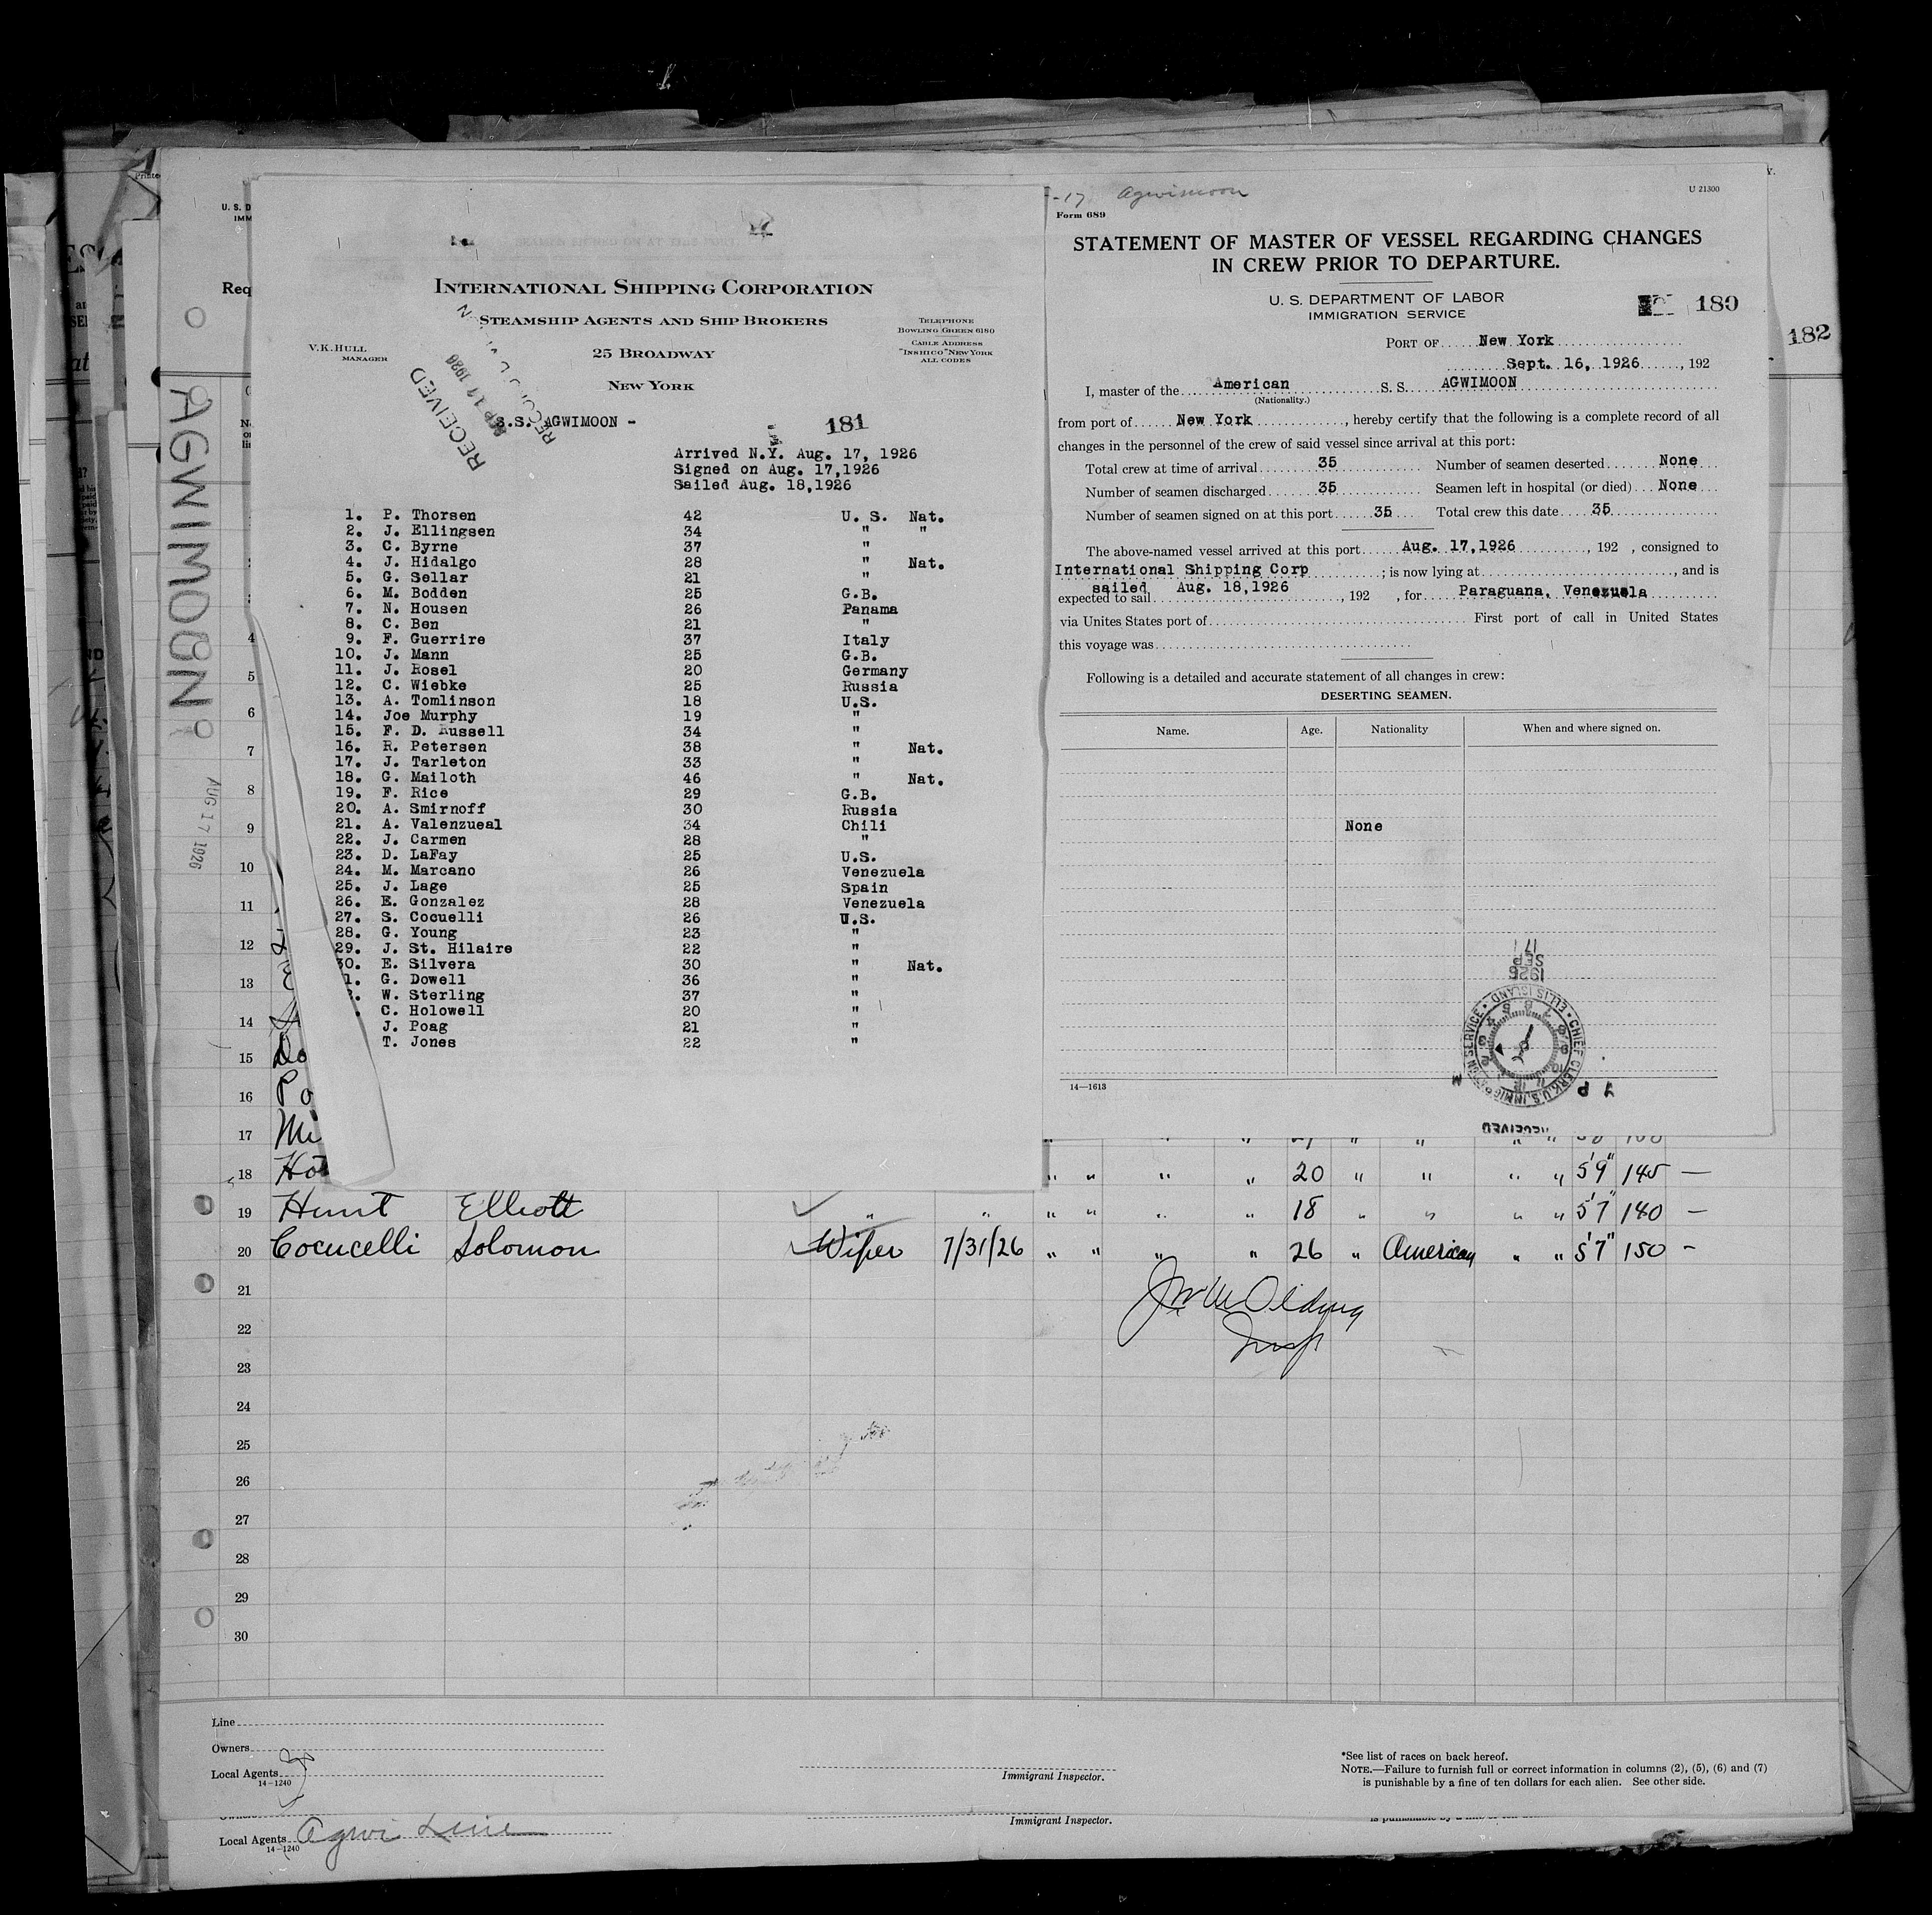 INTERNATIONAL SHIPPING CORPORATION
STEAMSHIP AGENTS AND SHIP BROKERS
TELEPHONE
BOWLING GREEN 6180
CABLE ADDRESS
"INSHICO" NEW YORK
ALL CODES
V.K. HULL
MANAGER
25 BROADWAY
NEW YORK
RECEIVED
S.S. AGWIMOON -
181
Arrived N.Y. Aug. 17, 1926
Signed on Aug. 17,1926
Sailed Aug. 18,1926
1. P. Thorsen 42 U. S. Nat.
2. J. Ellingsen 34 " "
3. C. Byrne 37 "
4. J. Hidalgo 28 " Nat.
5. G. Sellar 21 "
6. M. Bodden 25 G.B.
7. N. Housen 26 Panama
8. C. Ben 21 "
9. F. Guerrire 37 Italy
10. J. Mann 25 G.B.
11. J. Rosel 20 Germany
12. C. Wiebke 25 Russia
13. A. Tomlinson 18 U.S.
14. Joe Murphy 19 "
15. F. D. Russell 34 "
16. R. Petersen 38 " Nat.
17. J. Tarleton 33 "
18. G. Mailoth 46 " Nat.
19. F. Rice 29 G.B.
20. A. Smirnoff 30 Russia
21. A. Valenzueal 34 Chili
22. J. Carmen 28 "
23. D. LaFay 25 U.S.
24. M. Marcano 26 Venezuela
25. J. Lage 25 Spain
26. E. Gonzalez 28 Venezuela
27. S. Cocuelli 26 U.S.
28. G. Young 23 "
29. J. St. Hilaire 22 "
30. E. Silvera 30 " Nat.
1. G. Dowell 36 "
W. Sterling 37 "
C. Holowell 20 "
J. Poag 21 "
T. Jones 22 "
-17 Agwimoon
U 21300
Form 689
STATEMENT OF MASTER OF VESSEL REGARDING CHANGES
IN CREW PRIOR TO DEPARTURE.
U. S. DEPARTMENT OF LABOR
IMMIGRATION SERVICE
180
182
PORT OF New York
Sept. 16, 1926, 192
I, master of the American S. S. AGWIMOON
(Nationality.)
from port of New York, hereby certify that the following is a complete record of all
changes in the personnel of the crew of said vessel since arrival at this port:
Total crew at time of arrival 35 Number of seamen deserted None
Number of seamen discharged 35 Seamen left in hospital (or died) None
Number of seamen signed on at this port 35 Total crew this date 35
The above-named vessel arrived at this port Aug. 17,1926, 192 , consigned to
International Shipping Corp ; is now lying at , and is
sailed Aug. 18,1926
expected to sail , 192 , for Paraguana, Venezuela
via Unites States port of First port of call in United States
this voyage was
Following is a detailed and accurate statement of all changes in crew:
DESERTING SEAMEN.
Name. Age. Nationality When and where signed on.
None
14—1613
1926
SEP
17
CHIEF CLERK, U.S. IMMIGRATION SERVICE • ELLIS ISLAND •
RECEIVED
Printe
U. S. D
IMM
Req
AGWIMOON
AUG 17 1926
4
5
6
7
8
9
10
11
12
13
14
15 Do
16 Po
17 Mi
18 Ho " " " " 20 " " " " 5'9" 145 —
19 Hunt Elliott " " " " " " 18 " " " " 5'7" 140 —
20 Cocucelli Solomon Wiper 7/31/26 " " " " 26 " American " " 5'7" 150 -
21
22
23
24
25
26
27
28
29
30
Insp
Line
Owners
Local Agents
14-1240
Immigrant Inspector.
*See list of races on back hereof.
NOTE.—Failure to furnish full or correct information in columns (2), (5), (6) and (7)
is punishable by a fine of ten dollars for each alien. See other side.
Local Agents Agwi Line
14-1240
Immigrant Inspector.